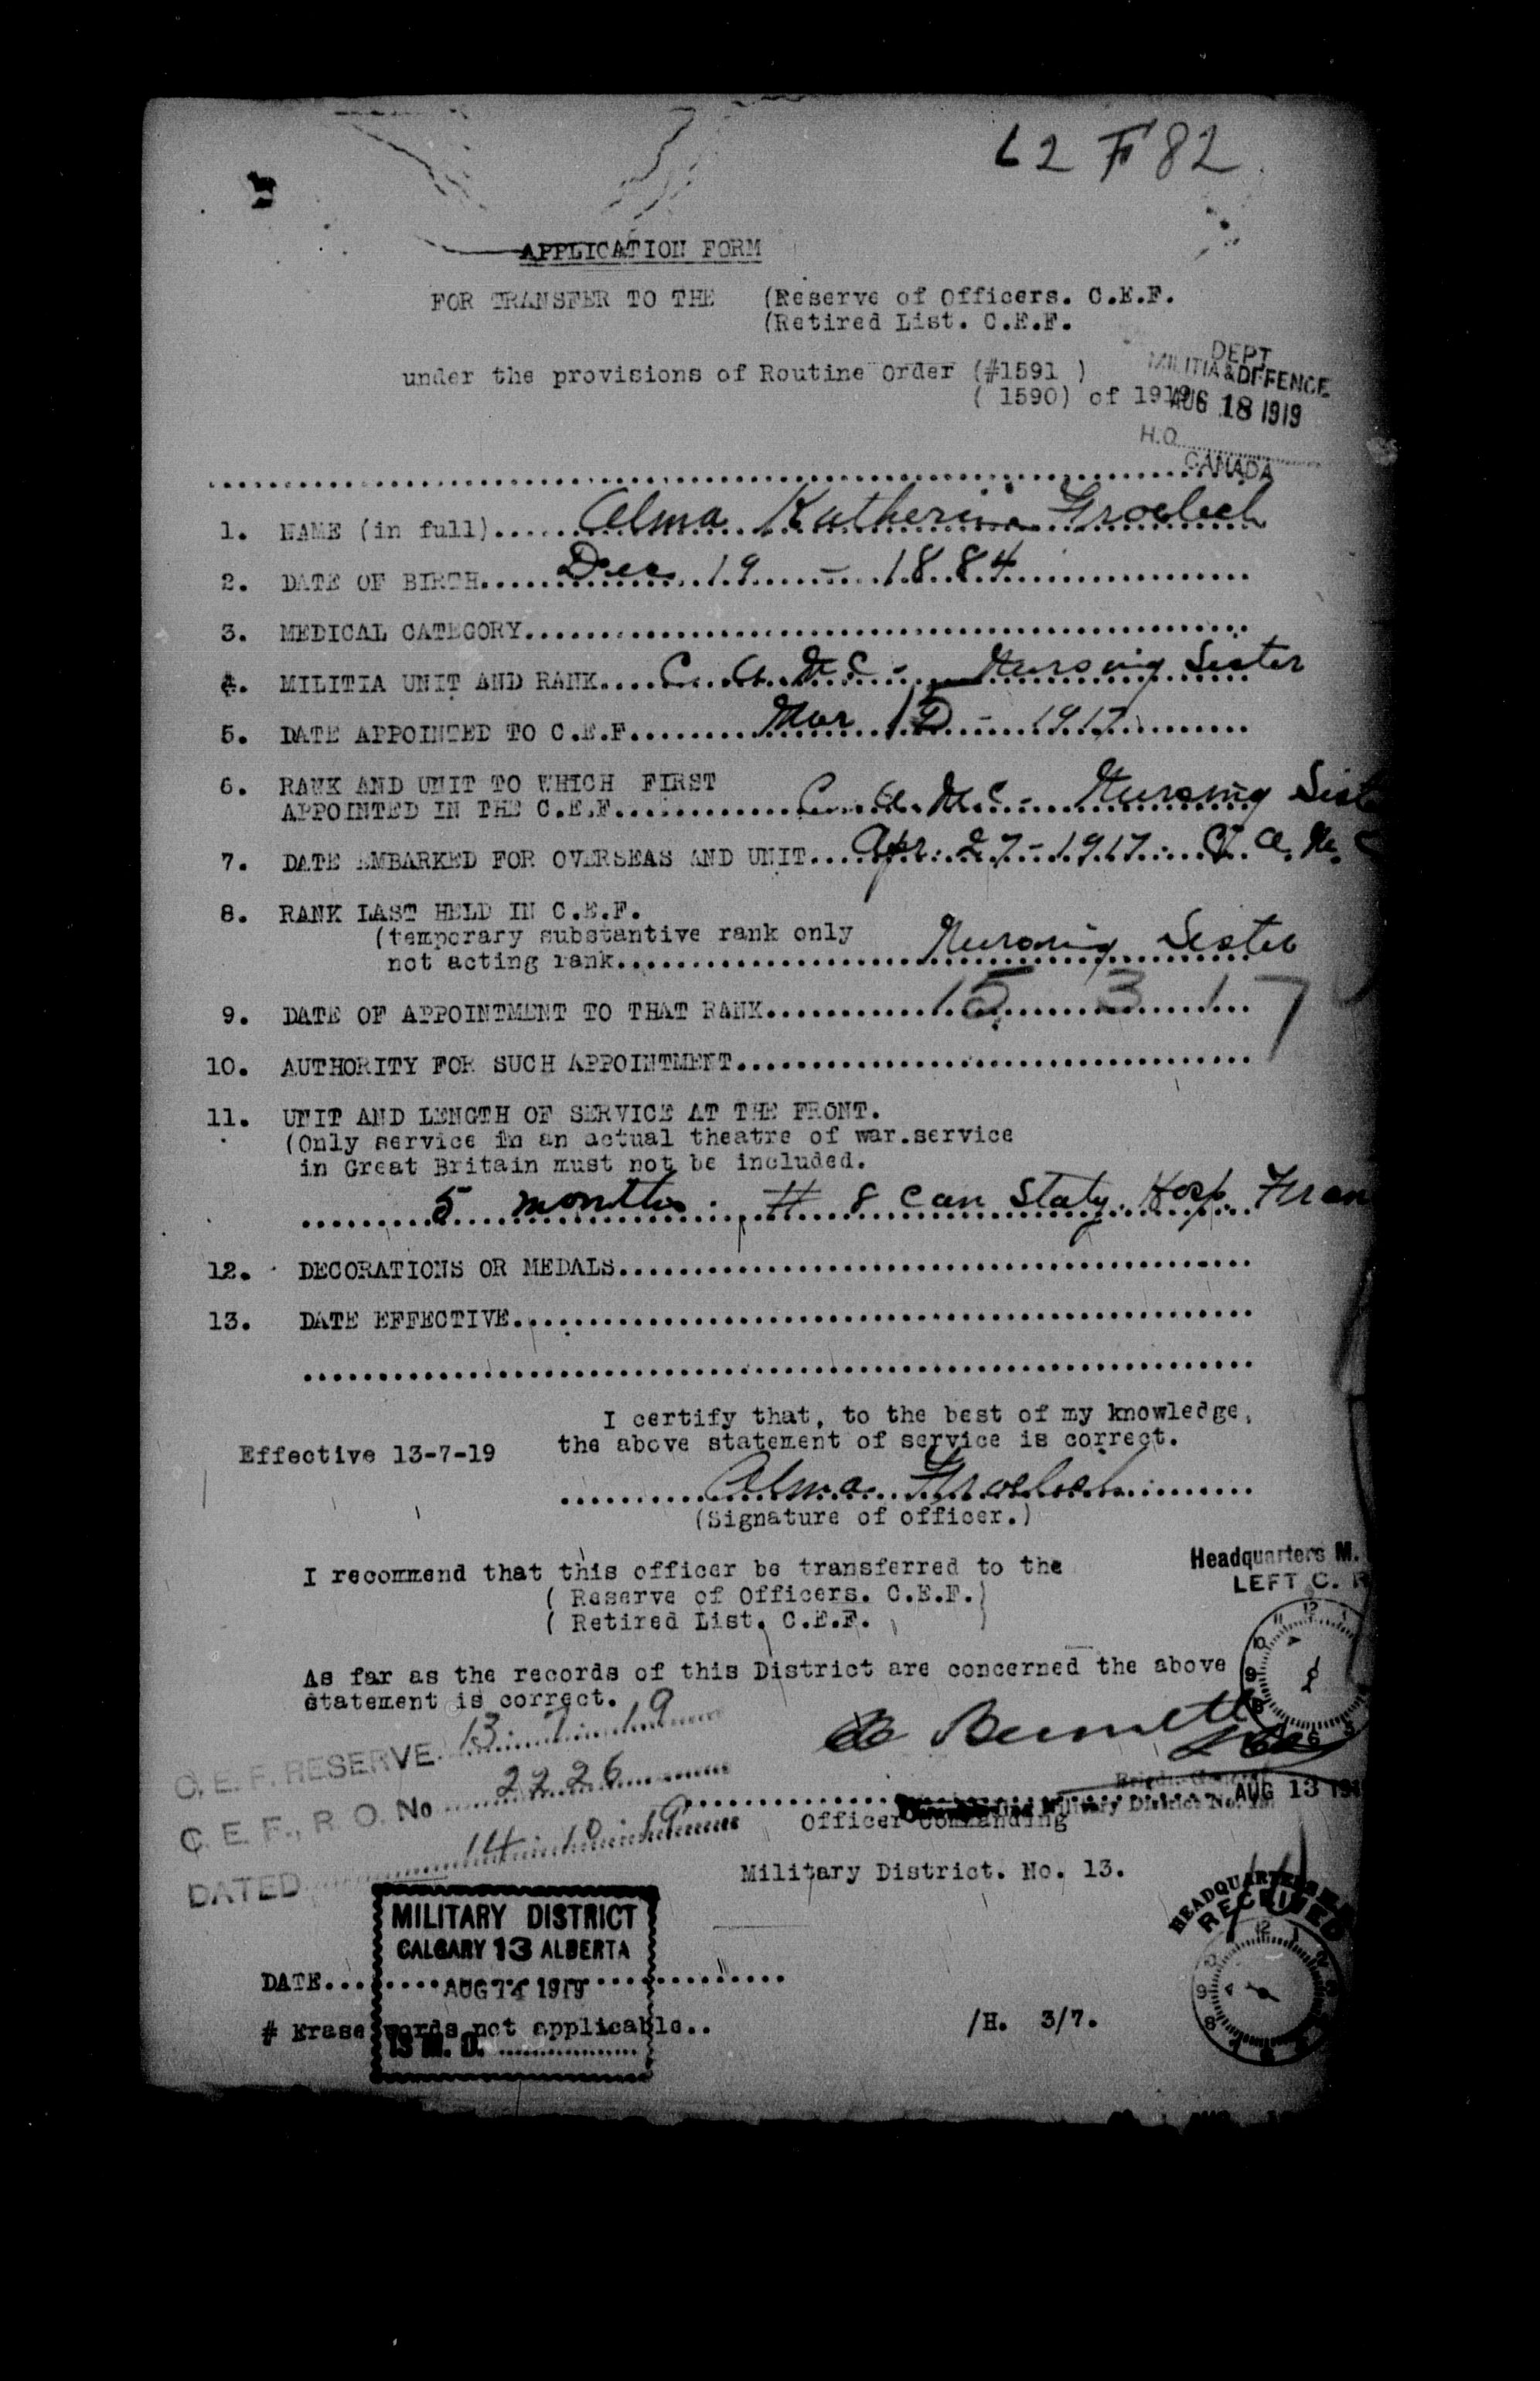 62 F 82
APPLICATION FORM
FOR TRANSFER TO THE (Reserve of Officers. C.E.F.
(Retired List. C.E.F.
under the provisions of Routine Order (#1591 )
( 1590) of 1919
DEPT
MILITIA & DEFENCE
AUG 18 1919
H.Q.
CANADA
1. NAME (in full).....Alma Katherine
2. DATE OF BIRTH.....Dec 19 - 1884
3. MEDICAL CATEGORY.....
4. MILITIA UNIT AND RANK....C.A.M.C - Nursing Sister
5. DATE APPOINTED TO C.E.F.....Mar 15 - 1917
6. RANK AND UNIT TO WHICH FIRST
APPOINTED IN THE C.E.F.....C.A.M.C - Nursing Sist
7. DATE EMBARKED FOR OVERSEAS AND UNIT...Apr. 27 - 1917. C.A.M.C
8. RANK LAST HELD IN C.E.F.
(temporary substantive rank only
not acting rank.....Nursing Sister
9. DATE OF APPOINTMENT TO THAT RANK.....15 3 17
10. AUTHORITY FOR SUCH APPOINTMENT.....
11. UNIT AND LENGTH OF SERVICE AT THE FRONT.
(Only service in an actual theatre of war.service
in Great Britain must not be included.
5 months. # 8 Can Staty. Hosp. Fran
12. DECORATIONS OR MEDALS.....
13. DATE EFFECTIVE.....
I certify that, to the best of my knowledge,
Effective 13-7-19 the above statement of service is correct.
Alma
(Signature of officer.)
I recommend that this officer be transferred to the
( Reserve of Officers. C.E.F.)
( Retired List. C.E.F. )
Headquarters M.
LEFT C. R
As far as the records of this District are concerned the above
statement is correct.
C. E. F. RESERVE 13.7.19
C. E. F., R. O. No 2226
DATED 14.10.19
Brigd.-General
Military District No. 13
AUG 13 191
Officer Commanding
Military District. No. 13.
HEADQUARTERS
RECEIVED
MILITARY DISTRICT
CALGARY 13 ALBERTA
DATE.....AUG 14 1919
# Erase words not applicable..
13 M. D.
/H. 3/7.